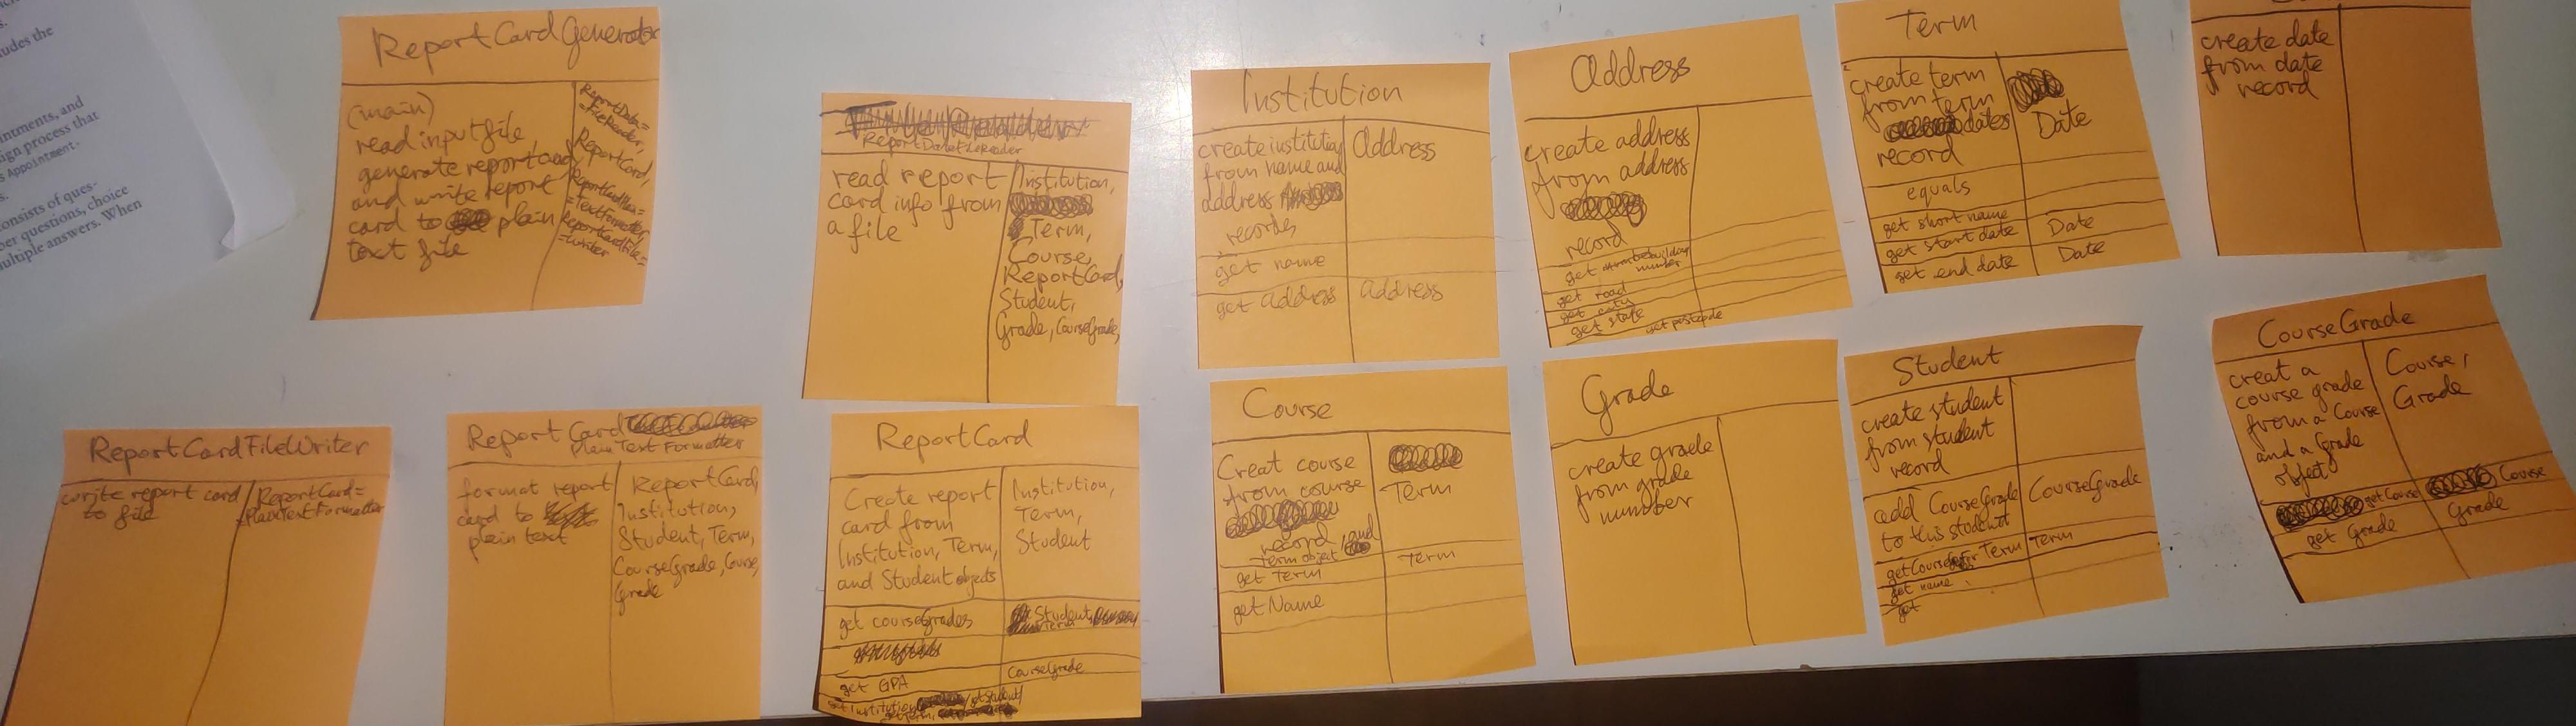 udes the
intments, and
ign process that
s Appointment-
s.
onsists of ques-
per questions, choice
ultiple answers. When
ReportCardGenerator
(main)
read input file,
generate report card,
and write report
card to plain
text file
ReportData=
=FileReader,
ReportCard,
=TextFormatter,
ReportCardFile=
=Writer
ReportDataFileReader
read report
card info from
a file
Institution,
Term,
Course,
ReportCard,
Student,
Grade, CourseGrade,
Institution
create institution
from name and
address
records
Address
get name
get address
Address
Address
create address
from address
record
get building
number
get road
get city
get state
get postcode
Term
create term
from term
dates
record
Date
equals
get short name
get start date
Date
get end date
Date
create date
from date
record
ReportCardFileWriter
write report card
to file
ReportCard=
=PlainTextFormatter
Report Card
Plain Text Formatter
format report
card to
plain text
ReportCard,
Institution,
Student, Term,
CourseGrade, Course,
Grade
ReportCard
Create report
card from
Institution, Term,
and Student objects
Institution,
Term,
Student
get courseGrades
Student,
Term
get GPA
CourseGrade
get Institution / getStudent/
getTerm,
Course
Creat course
from course
record, and
Term object
Term
get Term
Term
getName
Grade
create grade
from grade
number
Student
create student
from student
record
add CourseGrade
to this student
CourseGrade
Term
get name
get
CourseGrade
creat a
course grade
from a Course
and a Grade
object
Course,
Grade
getCourse
Course
get Grade
Grade